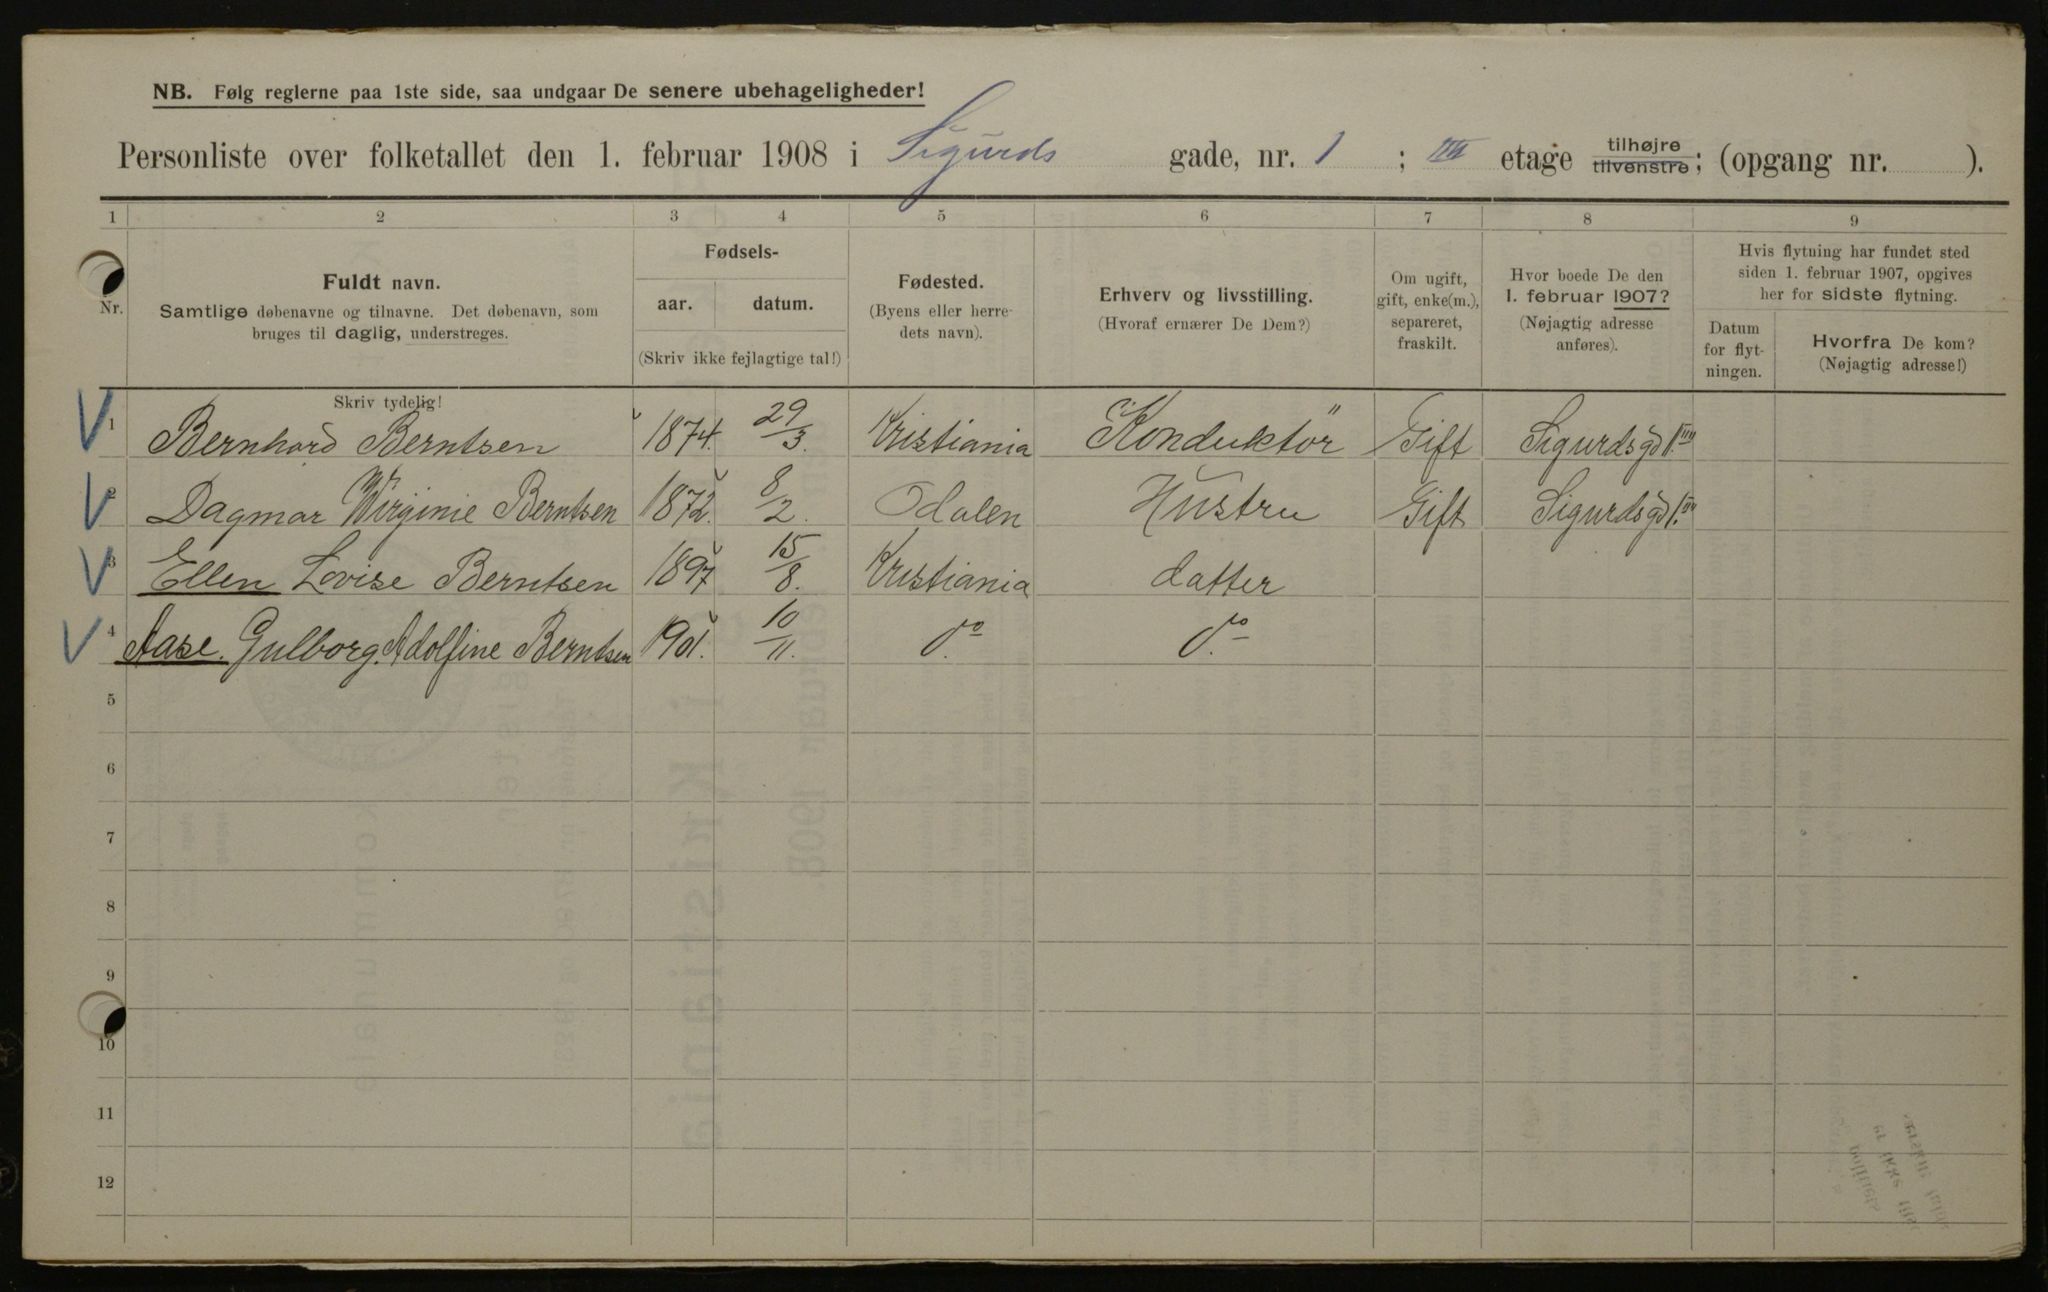 NB. Følg reglerne paa 1ste side, saa undgaar De senere ubehageligheder!
Personliste over folketallet den 1. februar 1908 i Sigurds gade, nr. 1 ; III etage tilhøjre tilvenstre; (opgang nr. ).
1 2 3 4 5 6 7 8 9
Nr.
Fuldt navn.
Samtlige døbenavne og tilnavne. Det døbenavn, som
bruges til daglig, understreges.
Fødsels-
aar. datum.
(Skriv ikke fejlagtige tal!)
Fødested.
(Byens eller herre-
dets navn).
Erhverv og livsstilling.
(Hvoraf ernærer De Dem?)
Om ugift,
gift, enke(m.),
separeret,
fraskilt.
Hvor boede De den
1. februar 1907?
(Nøjagtig adresse
anføres).
Hvis flytning har fundet sted
siden 1. februar 1907, opgives
her for sidste flytning.
Datum
for flyt-
ningen.
Hvorfra De kom?
(Nøjagtig adresse!)
Skriv tydelig!
1 Bernhard Berntsen 1874. 29/3. Kristiania Konduktör Gift Sigurdsgd 1.
2 Dagmar Wirginie Berntsen 1872. 8/2. Odalen Hustru Gift Sigurdsgd 1.
3 Ellen Lovise Berntsen 1897 15/8. Kristiania datter
4 Aase. Gulborg. Adolfine Berntsen 1901. 10/11. do do
5
6
7
8
9
10
11
12